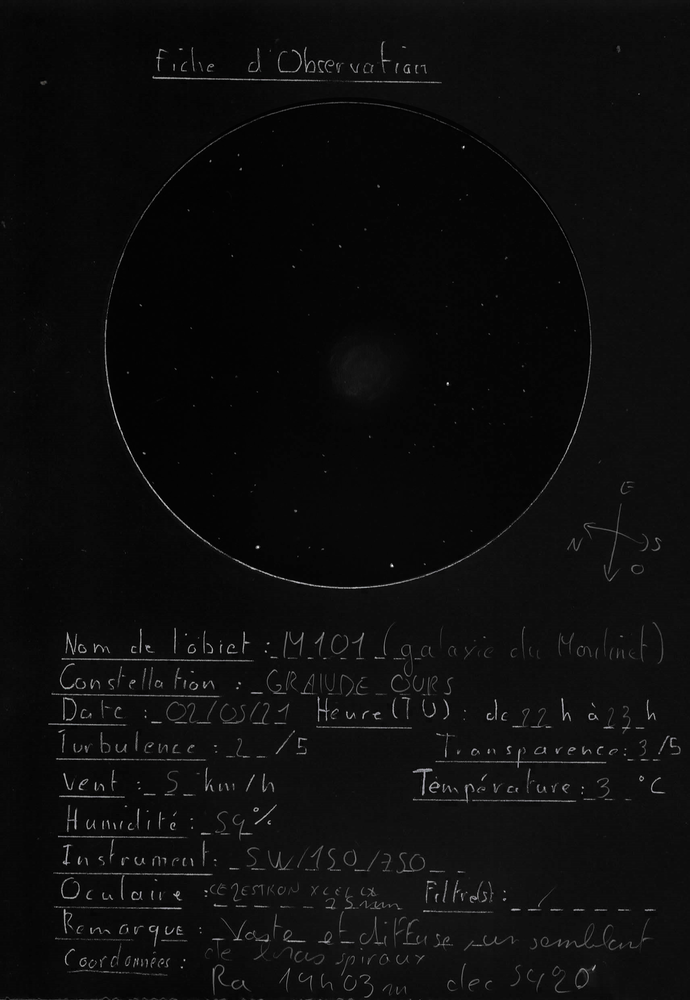 Fiche d'Observation
E
N S
O
Nom de l'objet : M101 (galaxie du Moulinet)
Constellation : GRANDE OURS
Date : 02/05/21 Heure (TU) : de 22 h à 23 h
Turbulence : 2 /5 Transparence : 3/5
Vent : 5 km/h Température : 3 °C
Humidité : 59%
Instrument : SW/150/750
Oculaire : CELESTRON X CEL LX Filtre(s) : /
25mm
Remarque : Vaste et diffuse, un semblant
de bras spiraux
Coordonnées :
Ra 14h03m dec 5420'